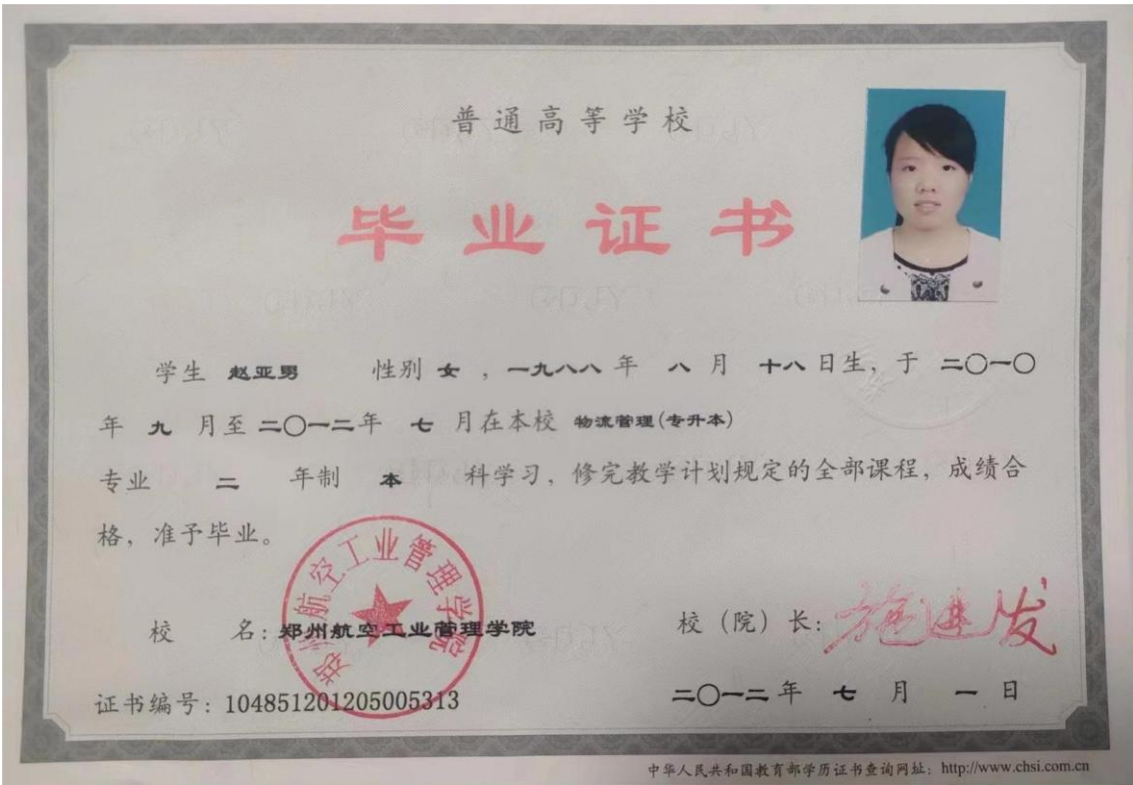 普通高等学校
毕业证书
学生 赵亚男 性别 女 ，一九八八 年 八 月 十八 日生，于 二〇一〇
年 九 月至 二〇一二 年 七 月在本校 物流管理(专升本)
专业 二 年制 本 科学习，修完教学计划规定的全部课程，成绩合
格，准予毕业。
郑州航空工业管理学院
校 名：郑州航空工业管理学院
校（院）长：施进发
证书编号：104851201205005313
二〇一二 年 七 月 一 日
中华人民共和国教育部学历证书查询网址：http://www.chsi.com.cn